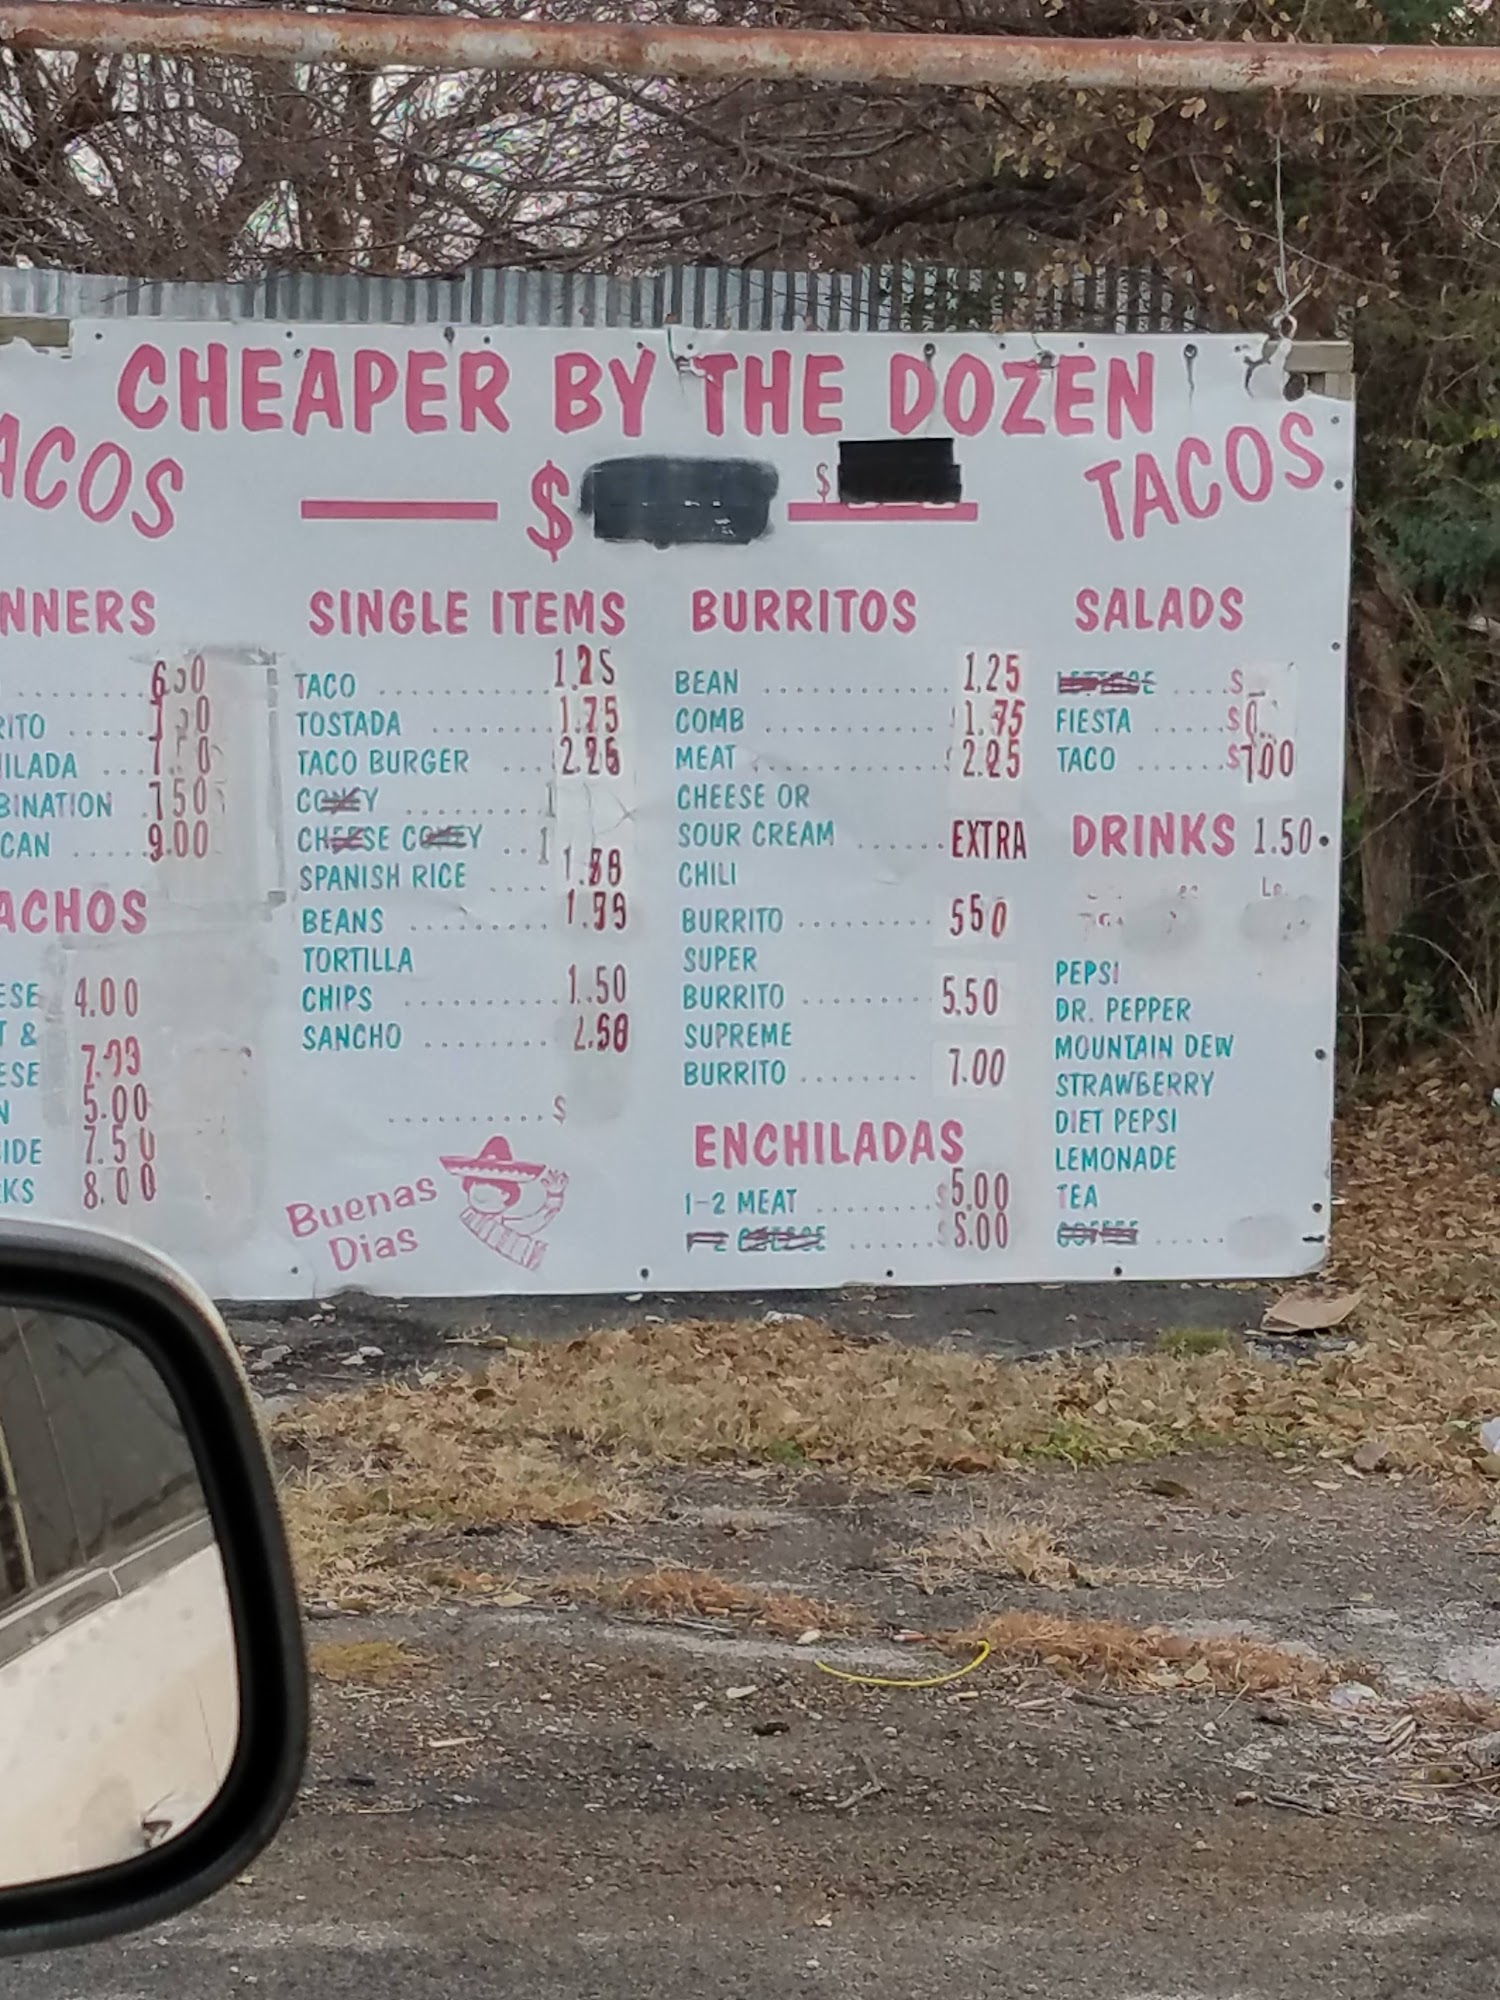 CHEAPER BY THE DOZEN
ACOS
$
$
TACOS
NNERS
RITO
ILADA
BINATION 7.50
CAN ..... 9.00
ACHOS
ESE 4.00
T &
ESE
N 5.00
IDE 7.50
KS 8.00
SINGLE ITEMS
TACO .......... 1.25
TOSTADA ......... 1.75
TACO BURGER ... 2.25
SPANISH RICE ....
BEANS ..........
TORTILLA
CHIPS .......... 1.50
SANCHO ........
.......... $
Buenas
Dias
BURRITOS
BEAN ............ 1.25
COMB ............ 1.75
MEAT ............ 2.25
CHEESE OR
SOUR CREAM ...... EXTRA
CHILI
BURRITO ......... 550
SUPER
BURRITO ......... 5.50
SUPREME
BURRITO ........ 7.00
ENCHILADAS
1-2 MEAT ........ $5.00
..... 5.00
SALADS
.... $
FIESTA ..... $
TACO ...... $7.00
DRINKS 1.50
PEPSI
DR. PEPPER
MOUNTAIN DEW
STRAWBERRY
DIET PEPSI
LEMONADE
TEA